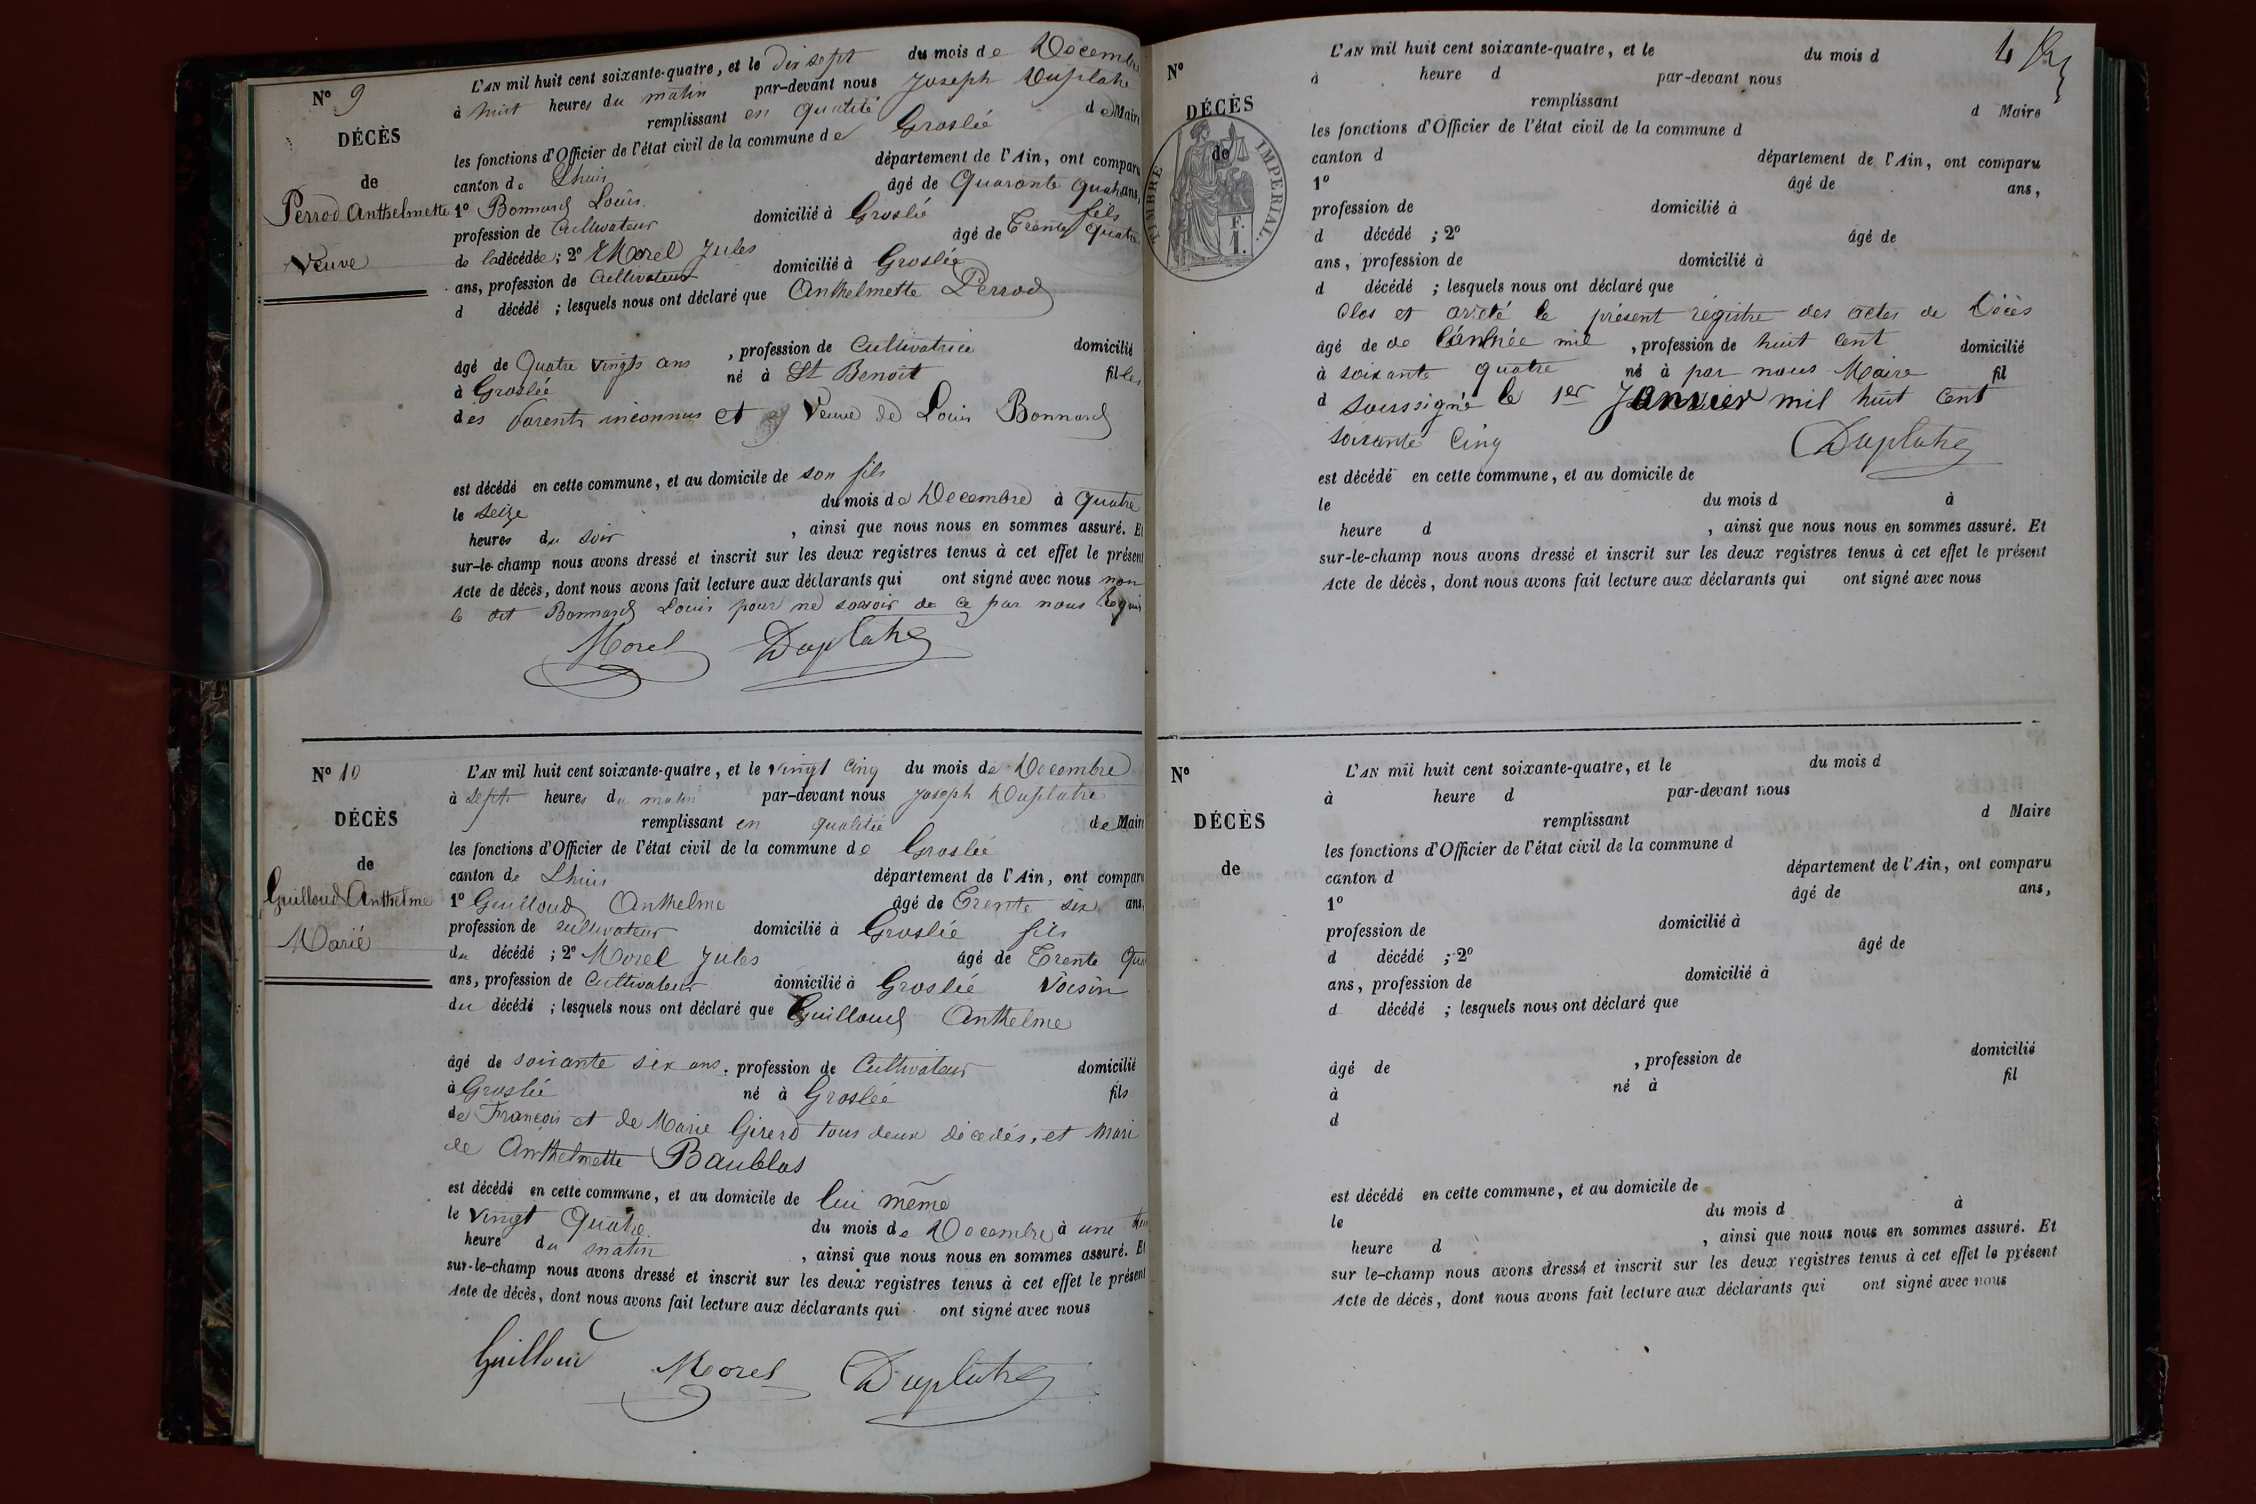 N° 9
DÉCÈS
de
Perrod Anthelmette
Veuve
L'AN mil huit cent soixante-quatre, et le dix sept du mois de Décembre
à huit heures du matin par-devant nous Joseph Duplatre
remplissant en qualité de Maire
les fonctions d'Officier de l'état civil de la commune de Groslée
canton de Lhuis département de l'Ain, ont comparu
1° Bonnard Louis âgé de Quarante quatre ans,
profession de Cultivateur domicilié à Groslée fils
de la décédée ; 2° Morel Jules âgé de Trente quatre
ans, profession de Cultivateur domicilié à Groslée
d décédé ; lesquels nous ont déclaré que Anthelmette Perrod
âgé de Quatre vingts ans , profession de Cultivatrice domicilié
à Groslée né à St Benoit fille
des Parents inconnus et Veuve de Louis Bonnard
est décédé en cette commune, et au domicile de son fils
le seize du mois de Decembre à quatre
heures du soir , ainsi que nous nous en sommes assuré. Et
sur-le-champ nous avons dressé et inscrit sur les deux registres tenus à cet effet le présent
Acte de décès, dont nous avons fait lecture aux déclarants qui ont signé avec nous non
le dit Bonnard Louis pour ne savoir de ce par nous Requis
Morel Duplatre
N° 10
DÉCÈS
de
Guilloud Anthelme
Marié
L'AN mil huit cent soixante-quatre, et le vingt cinq du mois de Decembre
à sept heures du matin par-devant nous Joseph Duplatre
remplissant en qualité de Maire
les fonctions d'Officier de l'état civil de la commune de Groslée
canton de Lhuis département de l'Ain, ont comparu
1° Guilloud Anthelme âgé de Trente six ans,
profession de cultivateur domicilié à Groslée fils
du décédé ; 2° Morel Jules âgé de Trente Qua
ans, profession de Cultivateur domicilié à Groslée Voisin
du décédé ; lesquels nous ont déclaré que Guilloud Anthelme
âgé de soixante six ans, profession de Cultivateur domicilié
à Groslée né à Groslée fils
de François et de Marie Girerd tous deux décédés, et Mari
de Anthelmette Baublas
est décédé en cette commune, et au domicile de lui même
le vingt Quatre du mois de Decembre à une
heure du matin , ainsi que nous nous en sommes assuré. Et
sur-le-champ nous avons dressé et inscrit sur les deux registres tenus à cet effet le présent
Acte de décès, dont nous avons fait lecture aux déclarants qui ont signé avec nous
Guilloud Morel Duplatre
4
N°
DÉCÈS
de
TIMBRE IMPERIAL.
F.
1.
L'AN mil huit cent soixante-quatre, et le du mois d
à heure d par-devant nous
remplissant d Maire
les fonctions d'Officier de l'état civil de la commune d
canton d département de l'Ain, ont comparu
1° âgé de ans,
profession de domicilié à
d décédé ; 2° âgé de
ans, profession de domicilié à
d décédé ; lesquels nous ont déclaré que
Clos et arreté le présent régistre des actes de Décès
âgé de de l'année mil , profession de huit cent domicilié
à soixante quatre né à par nous Maire fil
d soussigné le 1er Janvier mil huit cent
soixante cinq Duplatre
est décédé en cette commune, et au domicile de
le du mois d à
heure d , ainsi que nous nous en sommes assuré. Et
sur-le-champ nous avons dressé et inscrit sur les deux registres tenus à cet effet le présent
Acte de décès, dont nous avons fait lecture aux déclarants qui ont signé avec nous
N°
DÉCÈS
de
L'AN mil huit cent soixante-quatre, et le du mois d
à heure d par-devant nous
remplissant d Maire
les fonctions d'Officier de l'état civil de la commune d
canton d département de l'Ain, ont comparu
1° âgé de ans,
profession de domicilié à
d décédé ; 2° âgé de
ans, profession de domicilié à
d décédé ; lesquels nous ont déclaré que
âgé de , profession de domicilié
à né à fil
d
est décédé en cette commune, et au domicile de
le du mois d à
heure d , ainsi que nous nous en sommes assuré. Et
sur le-champ nous avons dressé et inscrit sur les deux registres tenus à cet effet le présent
Acte de décès, dont nous avons fait lecture aux déclarants qui ont signé avec nous